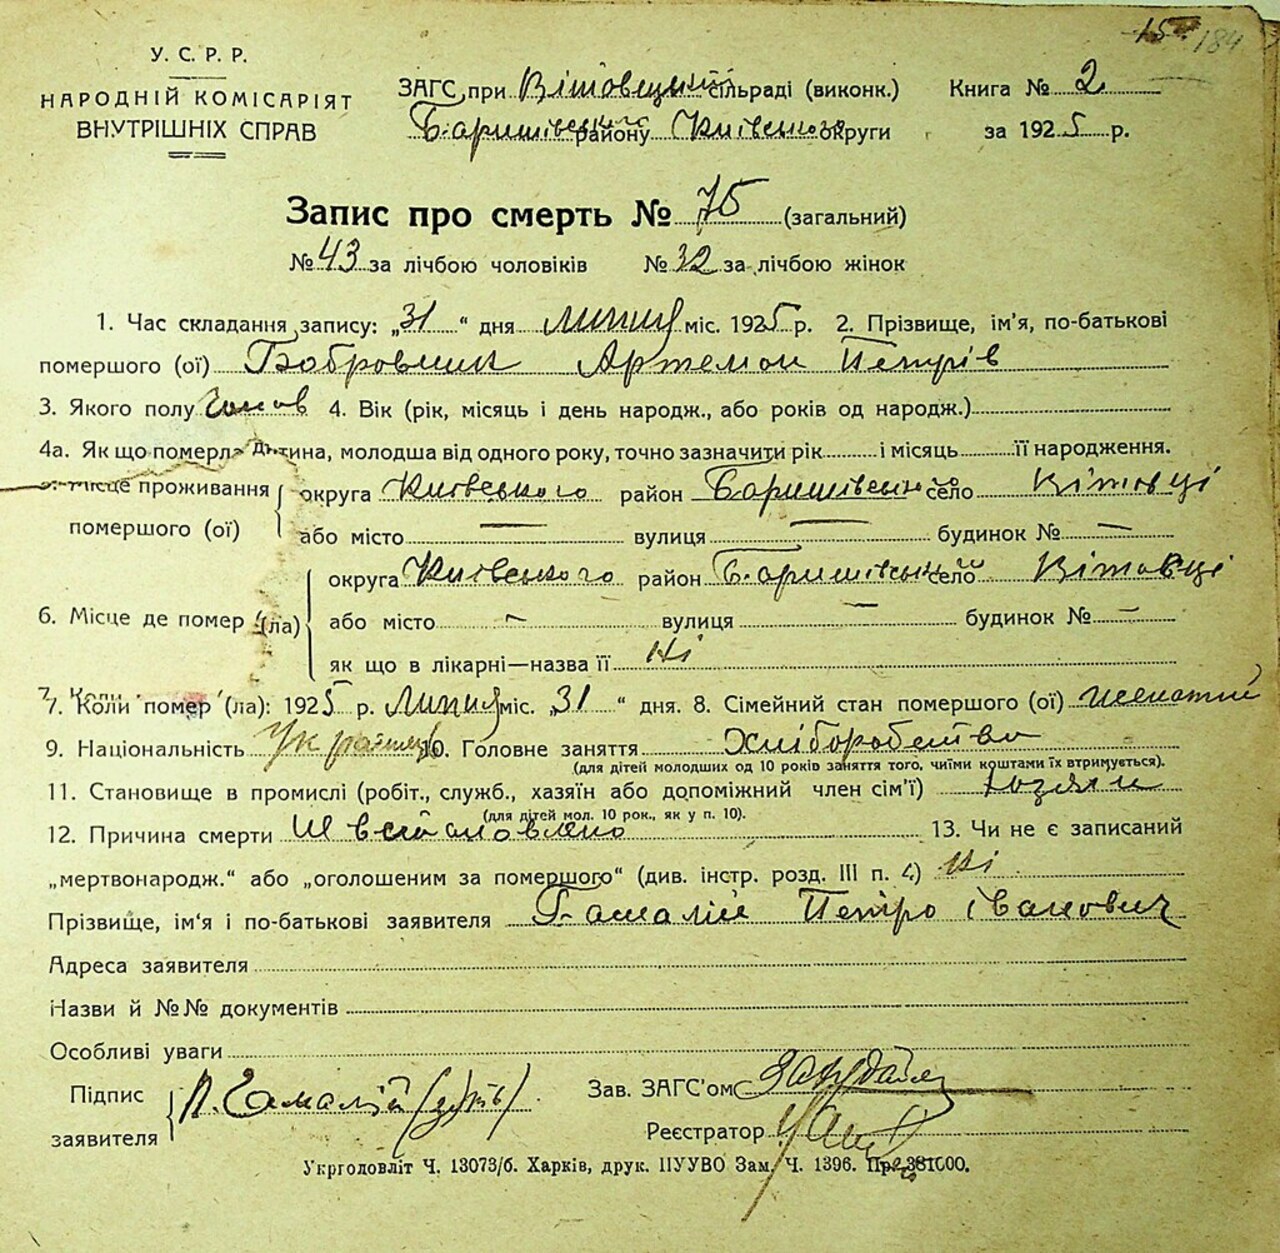 15 184
У. С. Р. Р.
НАРОДНІЙ КОМІСАРІЯТ
ВНУТРІШНІХ СПРАВ
ЗАГС при Вітовецький сільраді (виконк.) Книга № 2
Баришівського району Київського округи за 1925 р.
Запис про смерть № 75 (загальний)
№ 43 за лічбою чоловіків № 32 за лічбою жінок
1. Час складання запису: „31" дня липня міс. 1925 р. 2. Прізвище, ім'я, по-батькові
помершого (ої) Бобровник Артемон Петрів
3. Якого полу 4. Вік (рік, місяць і день народж., або років од народж.)
4а. Як що померла дитина, молодша від одного року, точно зазначити рік і місяць її народження.
Місце проживання округа Київського район Баришівський село Вітовці
помершого (ої) або місто — вулиця — будинок № —
округа Київського район Баришівський село Вітовці
6. Місце де помер (ла) або місто — вулиця — будинок № —
як що в лікарні—назва її Ні
7. Коли помер (ла): 1925 р. Липня міс. „31" дня. 8. Сімейний стан помершого (ої) женатий
9. Національність Українець 10. Головне заняття Хліборобство
(для дітей молодших од 10 років заняття того, чиїми коштами їх втримується).
11. Становище в промислі (робіт., служб., хазяїн або допоміжний член сім'ї) хозяин
(для дітей мол. 10 рок., як у п. 10).
12. Причина смерти 13. Чи не є записаний
„мертвонародж." або „оголошеним за помершого" (див. інстр. розд. III п. 4) Ні
Прізвище, ім'я і по-батькові заявителя Гамалій Петро Іванович
Адреса заявителя
Назви й №№ документів
Особливі уваги
Підпис заявителя П. Гамалій Зав. ЗАГС'ом
Реєстратор
Укрголовліт Ч. 13073/б. Харків, друк. ПУУВО Зам. Ч. 1396. Пр. 381000.